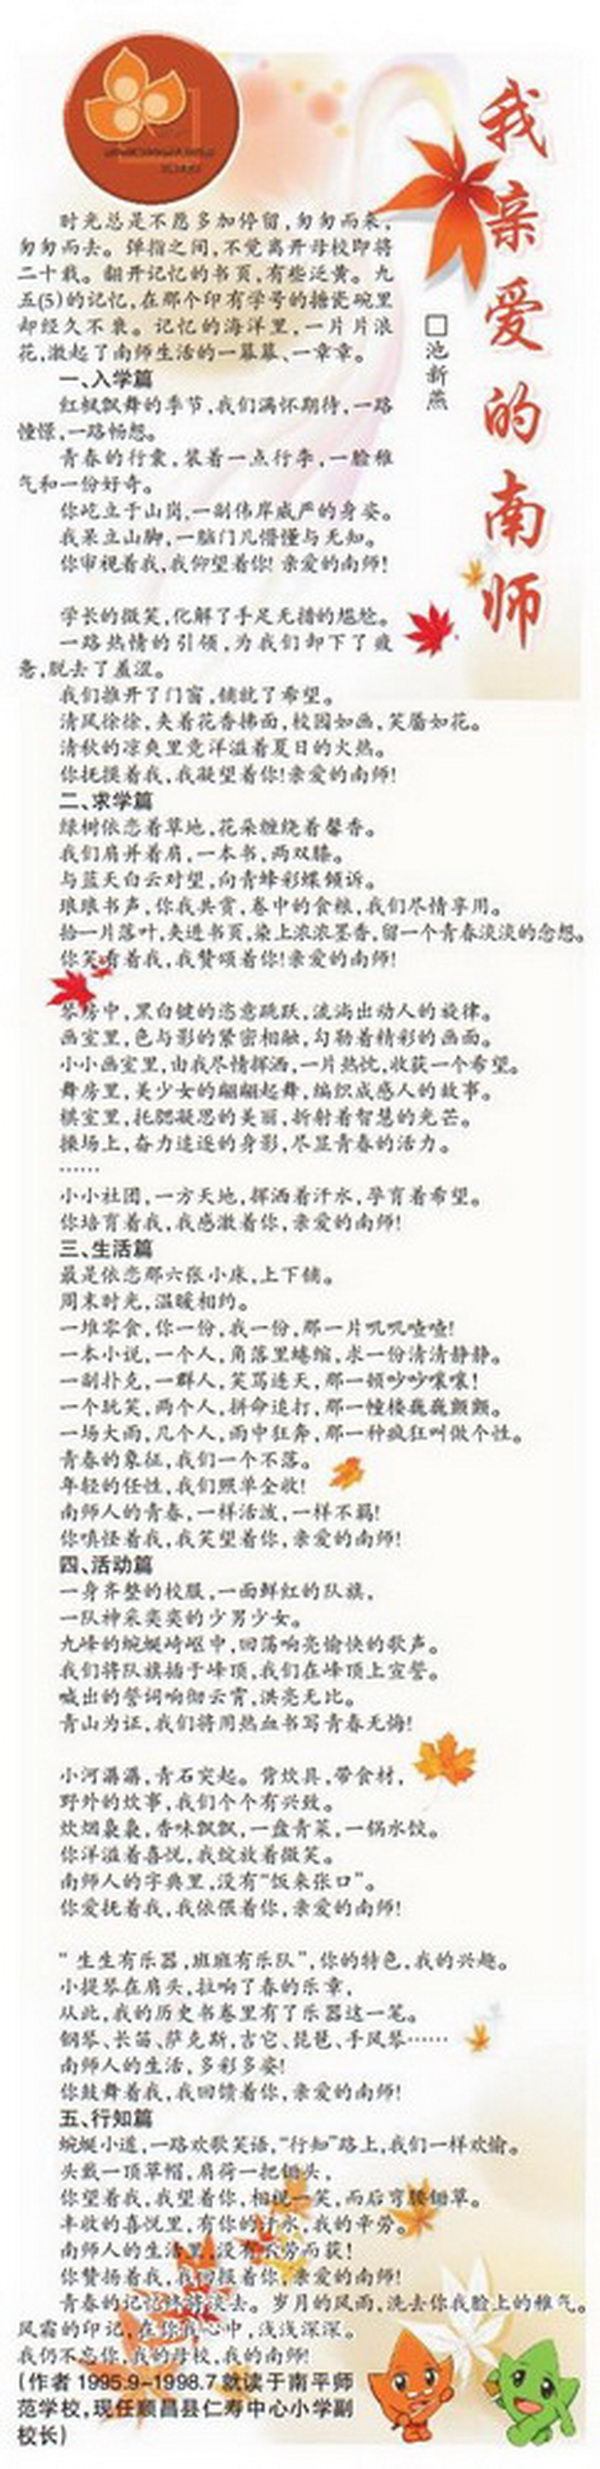 我亲爱的南师
□池新燕
时光总是不愿多加停留,匆匆而来,
匆匆而去。弹指之间,不觉离开母校即将
二十载。翻开记忆的书页,有些泛黄。九
五(5)的记忆,在那个印有学号的搪瓷碗里
却经久不衰。记忆的海洋里,一片片浪
花,激起了南师生活的一幕幕、一章章。
一、入学篇
红枫飘舞的季节,我们满怀期待,一路
憧憬,一路畅想。
青春的行囊,装着一点行李,一脸稚
气和一份好奇。
你屹立于山岗,一副伟岸威严的身姿。
我呆立山脚,一脑门儿懵懂与无知。
你审视着我,我仰望着你!亲爱的南师!
学长的微笑,化解了手足无措的尴尬。
一路热情的引领,为我们卸下了疲
惫,脱去了羞涩。
我们推开了门窗,铺就了希望。
清风徐徐,夹着花香拂面,校园如画,笑靥如花。
清秋的凉爽里竟洋溢着夏日的火热。
你抚摸着我,我凝望着你!亲爱的南师!
二、求学篇
绿树依恋着草地,花朵缠绕着馨香。
我们肩并着肩,一本书,两双膝。
与蓝天白云对望,向青蜂彩蝶倾诉。
琅琅书声,你我共赏,卷中的食粮,我们尽情享用。
拾一片落叶,夹进书页,染上浓浓墨香,留一个青春淡淡的念想。
你笑看着我,我赞颂着你!亲爱的南师!
琴房中,黑白键的恣意跳跃,流淌出动人的旋律。
画室里,色与影的紧密相融,勾勒着精彩的画面。
小小画室里,由我尽情挥洒,一片热忱,收获一个希望。
舞房里,美少女的翩翩起舞,编织成感人的故事。
棋室里,托腮凝思的美丽,折射着智慧的光芒。
操场上,奋力追逐的身影,尽显青春的活力。
……
小小社团,一方天地,挥洒着汗水,孕育着希望。
你培育着我,我感激着你,亲爱的南师!
三、生活篇
最是依恋那六张小床,上下铺。
周末时光,温暖相约。
一堆零食,你一份,我一份,那一片叽叽喳喳!
一本小说,一个人,角落里蜷缩,求一份清清静静。
一副扑克,一群人,笑骂连天,那一顿吵吵嚷嚷!
一个玩笑,两个人,拼命追打,那一幢楼巍巍颤颤。
一场大雨,几个人,雨中狂奔,那一种疯狂叫做个性。
青春的象征,我们一个不落。
年轻的任性,我们照单全收!
南师人的青春,一样活泼,一样不羁!
你嗔怪着我,我笑望着你,亲爱的南师!
四、活动篇
一身齐整的校服,一面鲜红的队旗,
一队神采奕奕的少男少女。
九峰的蜿蜒崎岖中,回荡响亮愉快的歌声。
我们将队旗插于峰顶,我们在峰顶上宣誓。
喊出的誓词响彻云霄,洪亮无比。
青山为证,我们将用热血书写青春无悔!
小河潺潺,青石突起。背炊具,带食材,
野外的炊事,我们个个有兴致。
炊烟袅袅,香味飘飘,一盘青菜,一锅水饺。
你洋溢着喜悦,我绽放着微笑。
南师人的字典里,没有“饭来张口”。
你爱抚着我,我依偎着你,亲爱的南师!
“生生有乐器,班班有乐队”,你的特色,我的兴趣。
小提琴在肩头,拉响了春的乐章,
从此,我的历史书卷里有了乐器这一笔。
钢琴、长笛、萨克斯,吉它、琵琶、手风琴……
南师人的生活,多彩多姿!
你鼓舞着我,我回馈着你,亲爱的南师!
五、行知篇
蜿蜒小道,一路欢歌笑语,“行知”路上,我们一样欢愉。
头戴一顶草帽,肩荷一把锄头,
你望着我,我望着你,相视一笑,而后弯腰锄草。
丰收的喜悦里,有你的汗水,我的辛劳。
南师人的生活里,没有不劳而获!
你赞扬着我,我回报着你,亲爱的南师!
青春的记忆终将淡去。岁月的风雨,洗去你我脸上的稚气。
风霜的印记,在你我心中,浅浅深深。
我仍不忘你,我的母校,我的南师!
(作者1995.9-1998.7就读于南平师
范学校,现任顺昌县仁寿中心小学副
校长)